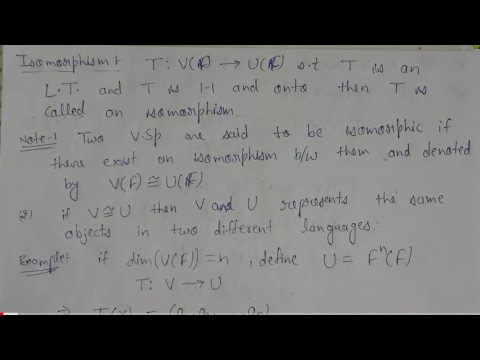 Isomorphism: T: V(F) → U(F) s.t T is an
L.T. and T is 1-1 and onto then T is
called an isomorphism.
Note-1 Two V.Sp are said to be isomorphic if
there exist an isomorphism b/w them and denoted
by V(F) ≅ U(F)
2) if V ≅ U then V and U represents the same
objects in two different languages.
Example: if dim(V(F)) = n, define U = Fⁿ(F)
T: V → U